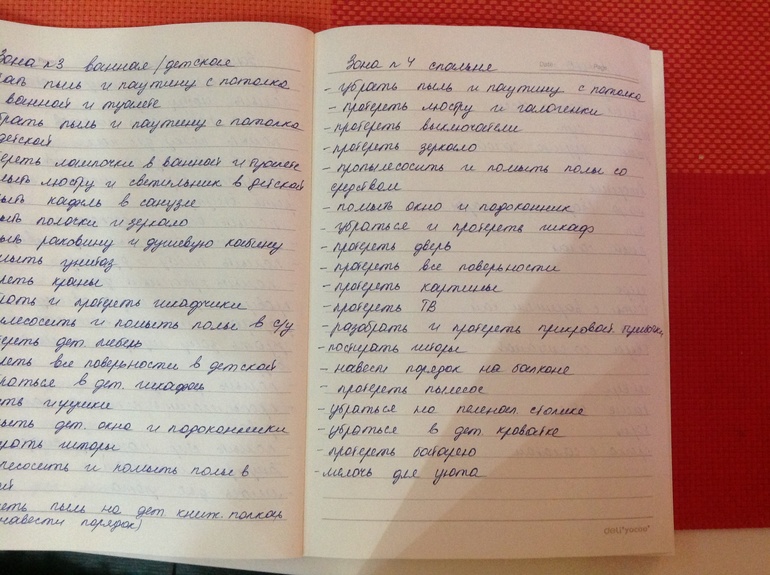 Зона №3 ванная/детская
пыль и паутину с потолка
ванной и туалете
пыль и паутину с потолка
детской
лампочки в ванной и туалете
люстру и светильник в детской
кафель в санузле
полочки и зеркало
раковину и душевую кабину
унитаз
краны
и протереть шкафчики
и помыть полы в с/у
дет. мебель
все поверхности в детской
в дет. шкафах
игрушки
дет. окно и подоконники
шторы
и помыть полы в
пыль на дет книж. полках
навести порядок)
Зона №4 спальне
- убрать пыль и паутину с потолка
- протереть люстру и галогенки
- протереть выключатели
- протереть зеркало
- пропылесосить и помыть полы со
средством
- помыть окно и подоконник
- убраться и протереть шкаф
- протереть дверь
- протереть все поверхности
- протереть картины
- протереть ТВ
- разобрать и протереть прикроват.
- постирать шторы
- навести порядок на балконе
- протереть пылесос
- убраться на пеленал. столике
- убраться в дет. кроватке
- протереть батарею
- мелочь для уюта